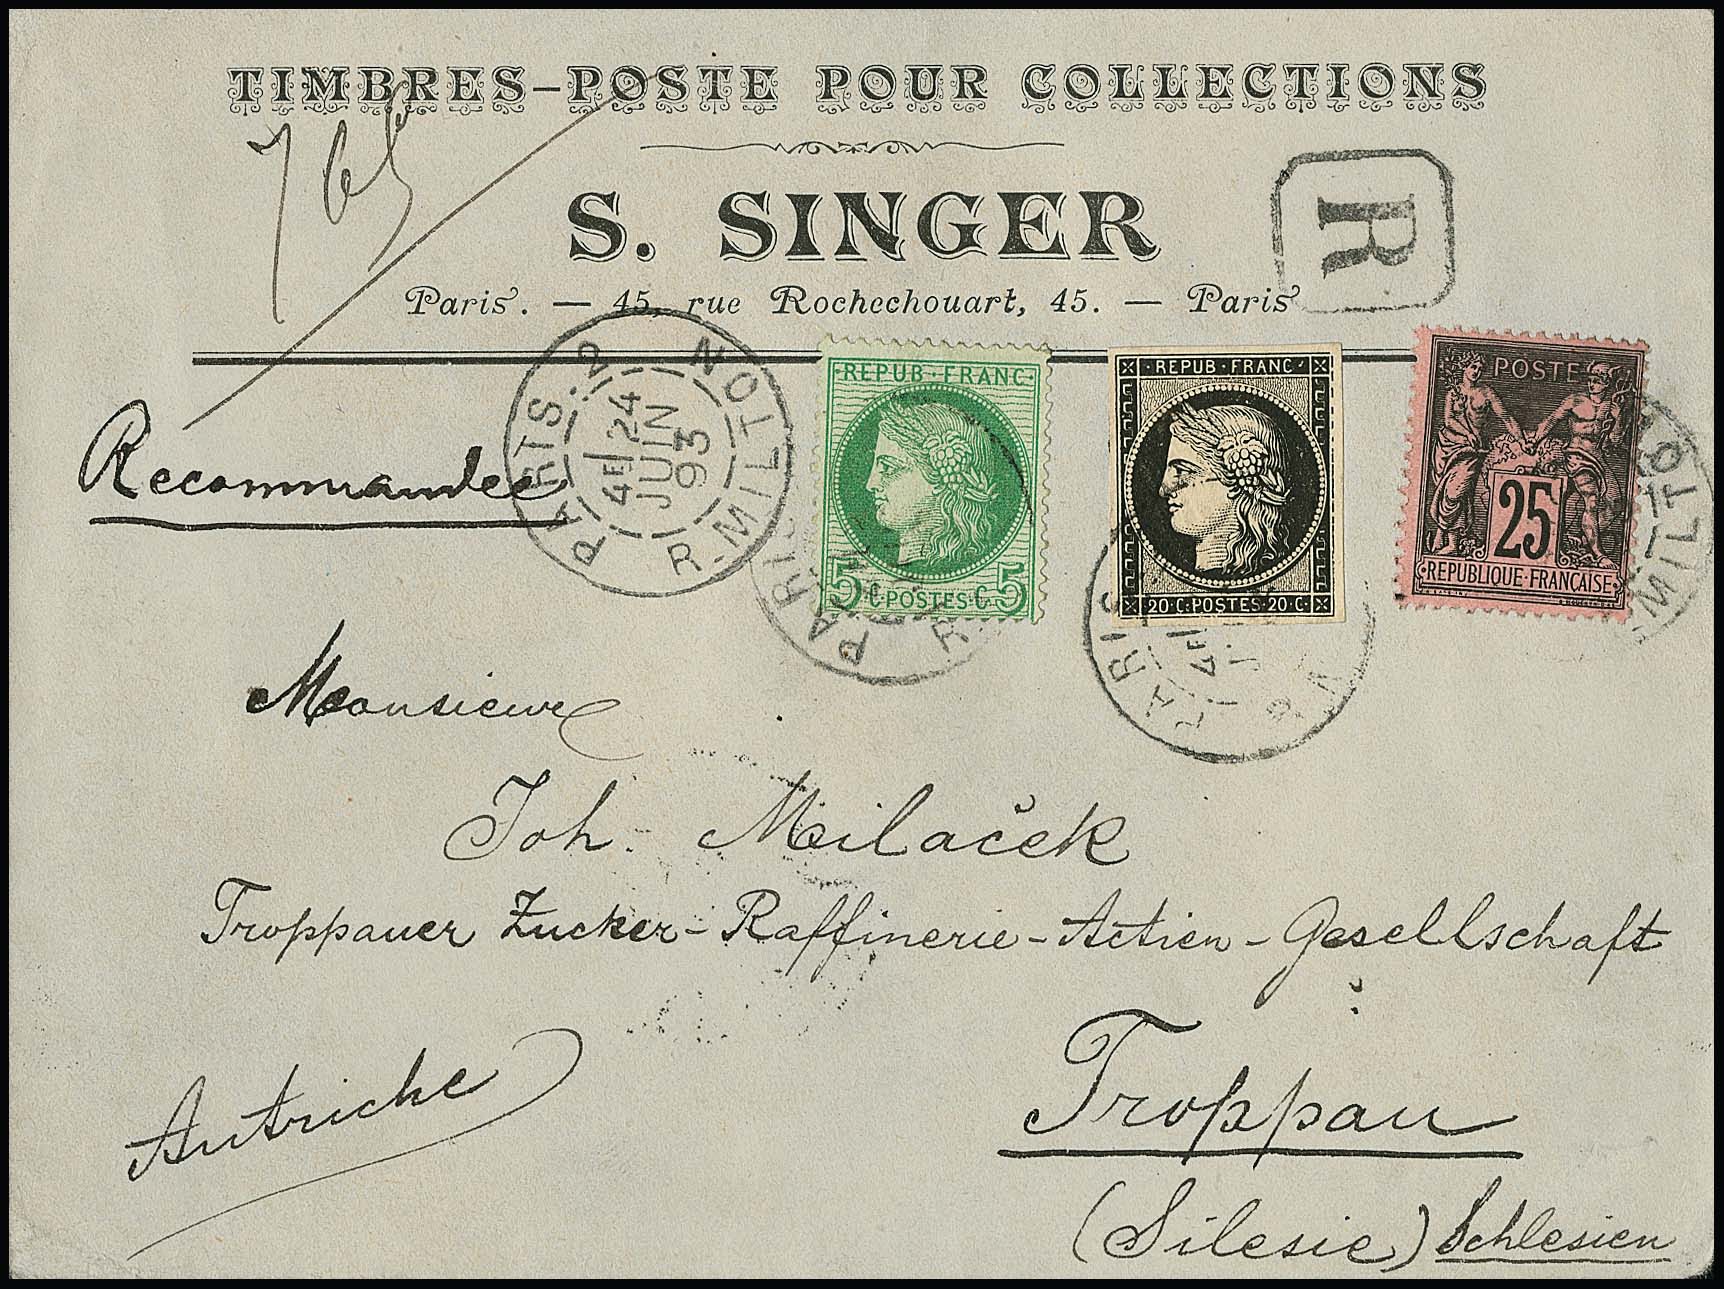 TIMBRES-POSTE POUR COLLECTIONS
765
S. SINGER
R
Paris. — 45, rue Rochechouart, 45. — Paris
Recommandée
PARIS 2 R-MILTON
4E 24
JUIN
93
REPUB·FRANC·
5·C·POSTES·C·5
PARIS R-
· REPUB·FRANC ·
20·C·POSTES·20·C·
PARIS
4E
POSTE
25
REPUBLIQUE·FRANÇAISE
MILTO
Monsieur
Joh. Milaček
Troppauer Zucker-Raffinerie-Actien-Gesellschaft
Troppau
Autriche
(Silesie) Schlesien